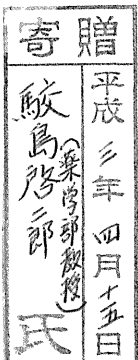 寄贈
平成 三年 四月 十五日
鮫島啓二郎(薬学部教授)氏